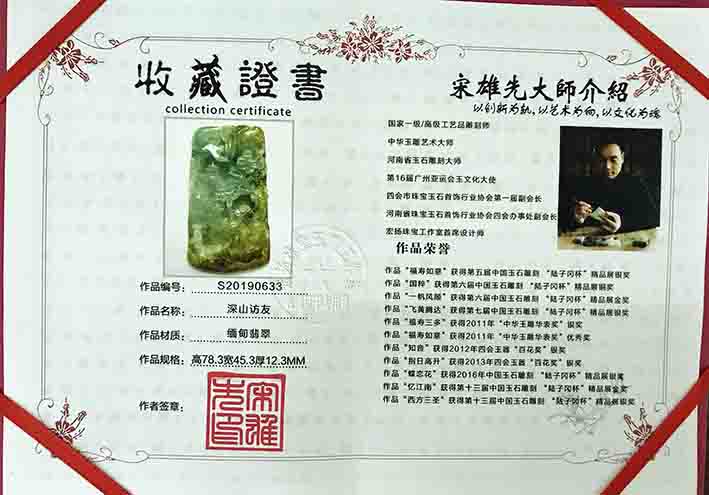 收藏證書
collection certificate
作品编号: S20190633
作品名称: 深山访友
作品材质: 缅甸翡翠
作品规格: 高78.3宽45.3厚12.3MM
作者签章:
宋雄先印
宋雄先大師介紹
以创新为轨,以艺术为向,以文化为魂
国家一级/高级工艺品雕刻师
中华玉雕艺术大师
河南省玉石雕刻大师
第16届广州亚运会玉文化大使
四会市珠宝玉石首饰行业协会第一届副会长
河南省珠宝玉石首饰行业协会四会办事处副会长
宏扬珠宝工作室首席设计师
作品荣誉
作品“福寿如意”获得第五届中国玉石雕刻 “陆子冈杯”精品展银奖
作品“国粹”获得第六届中国玉石雕刻 “陆子冈杯”精品展银奖
作品“一帆风顺”获得第六届中国玉石雕刻 “陆子冈杯”精品展金奖
作品“飞黄腾达”获得第七届中国玉石雕刻 “陆子冈杯”精品展银奖
作品“福寿三多”获得2011年“中华玉雕华表奖”银奖
作品“福寿如意”获得2011年“中华玉雕华表奖”优秀奖
作品“知音”获得2012年四会玉器 “百花奖”银奖
作品“指日高升”获得2013年四会玉器 “百花奖”铜奖
作品“蝶恋花”获得2016年中国玉石雕刻 “陆子冈杯”精品展银奖
作品“忆江南”获得第十三届中国玉石雕刻 “陆子冈杯”精品展金奖
作品“西方三圣”获得第十三届中国玉石雕刻 “陆子冈杯”精品展银奖